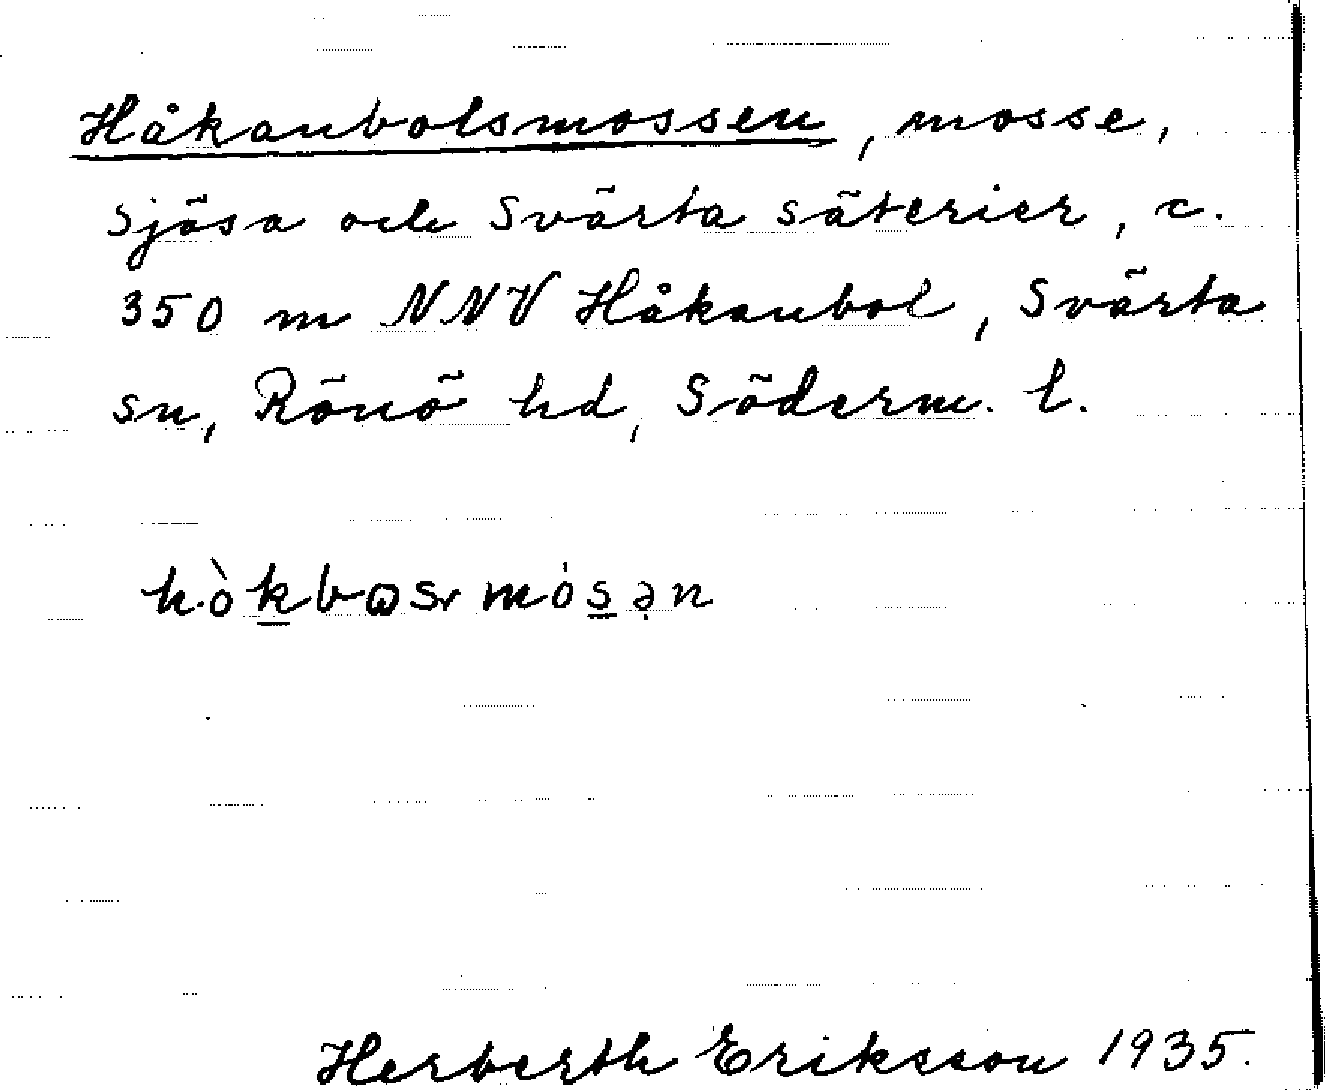 Håkanbolsmossen, mosse,
Sjösa och Svärta säterier, c.
350 m NNV Håkanbol, Svärta
sn, Rönö hd, Söderm. l.
Herberth Eriksson 1935.